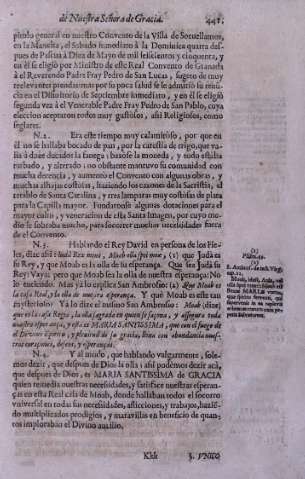 de Nuestra Señora de Gracia. 441.
pitulo general en nuestro Convento de la Villa de Sotuellamos,
en la Mancha, el Sabado inmediato à la Dominica quarta des-
pues de Pasqua à Diez de Mayo de mil seiscientos y cinquenta, y
en èl se eligiò por Ministro de este Real Convento de Granada
à el Reverendo Padre Fray Pedro de San Lucas, sugeto de muy
relevantes prendas: mas por su poca salud se le admitiò su renun-
cia en el Difinitorio de Septiembre inmediato, y en èl se eligiò
segunda vez à el Venerable Padre Fray Pedro de San Pablo, cuya
eleccion aceptaron todos muy gustosos, assi Religiosos, como
seglares.
N. 2. Era este tiempo muy calamitoso, por que en
èl no se hallaba bocado de pan, por la carestia de trigo, que va-
lia à doce ducados la fanega: baxose la moneda, y todo estaba
turbado, y alterado: no obstante mantuvo la comunidad con
mucha decencia, y aumentò el Convento con algunas obras, y
muchas alhajas costosas, haziendo los caxones de la Sacristia, el
retablo de Santa Catalina, y tres lamparas muy costosas de plata
para la Capilla mayor. Fundaronse algunas dotaciones para el
mayor culto, y veneracion de esta Santa Imagen, por cuyo me-
dio le sobraba mucho, para socorrer muchas necessidades fuera
de el Convento.
N. 3. Hablando el Rey David en persona de los Fie-
les, dize assi: Iudà Rex meus, Moab olla spei meæ, (1) que Judà es
su Rey, y que Moab es la olla de su esperanza. Que sea Judà su
Rey: Vaya; pero que Moab sea la olla de nuestra esperanza: No
lo entiendo. Mas yà lo explica San Ambrosio: (2) Que Moab es
la casa Real, y la olla de nuestra esperanza. Y què Moab es este tan
mysterioso? Yà lo dize el mismo San Ambrosio: Moab (dize)
que es la casa Regia, la olla sagrada en quien se sazona, y assegura toda
nuestra esperanza, y esta es MARIA SANTISSIMA, que con el fuego de
el Divino espiritu, y plenitud de su gracia, llena con abundancia nues-
tros corazones, deseos, y esperanzas.
N. 4. Y al modo, que hablando vulgarmente, sole-
mos dezir, que despues de Dios la olla; assi podemos dezir acà,
que despues de Dios, es MARIA SANTISSIMA de GRACIA
quien remedia nuestras necessidades, y satisface nuestras esperan-
zas en esta Real casa de Moab, donde hallaban todos el socorro
universal en todas sus necessidades, aflicciones, y trabajos, hazien-
do multiplicados prodigios, y maravillas en beneficio de quan-
tos imploraban el Divino auxilio.
Kkk 3. UNICO
(1)
Psalm. 59.
(2)
S. Ambros. de inst. Virg.
cap. 13.